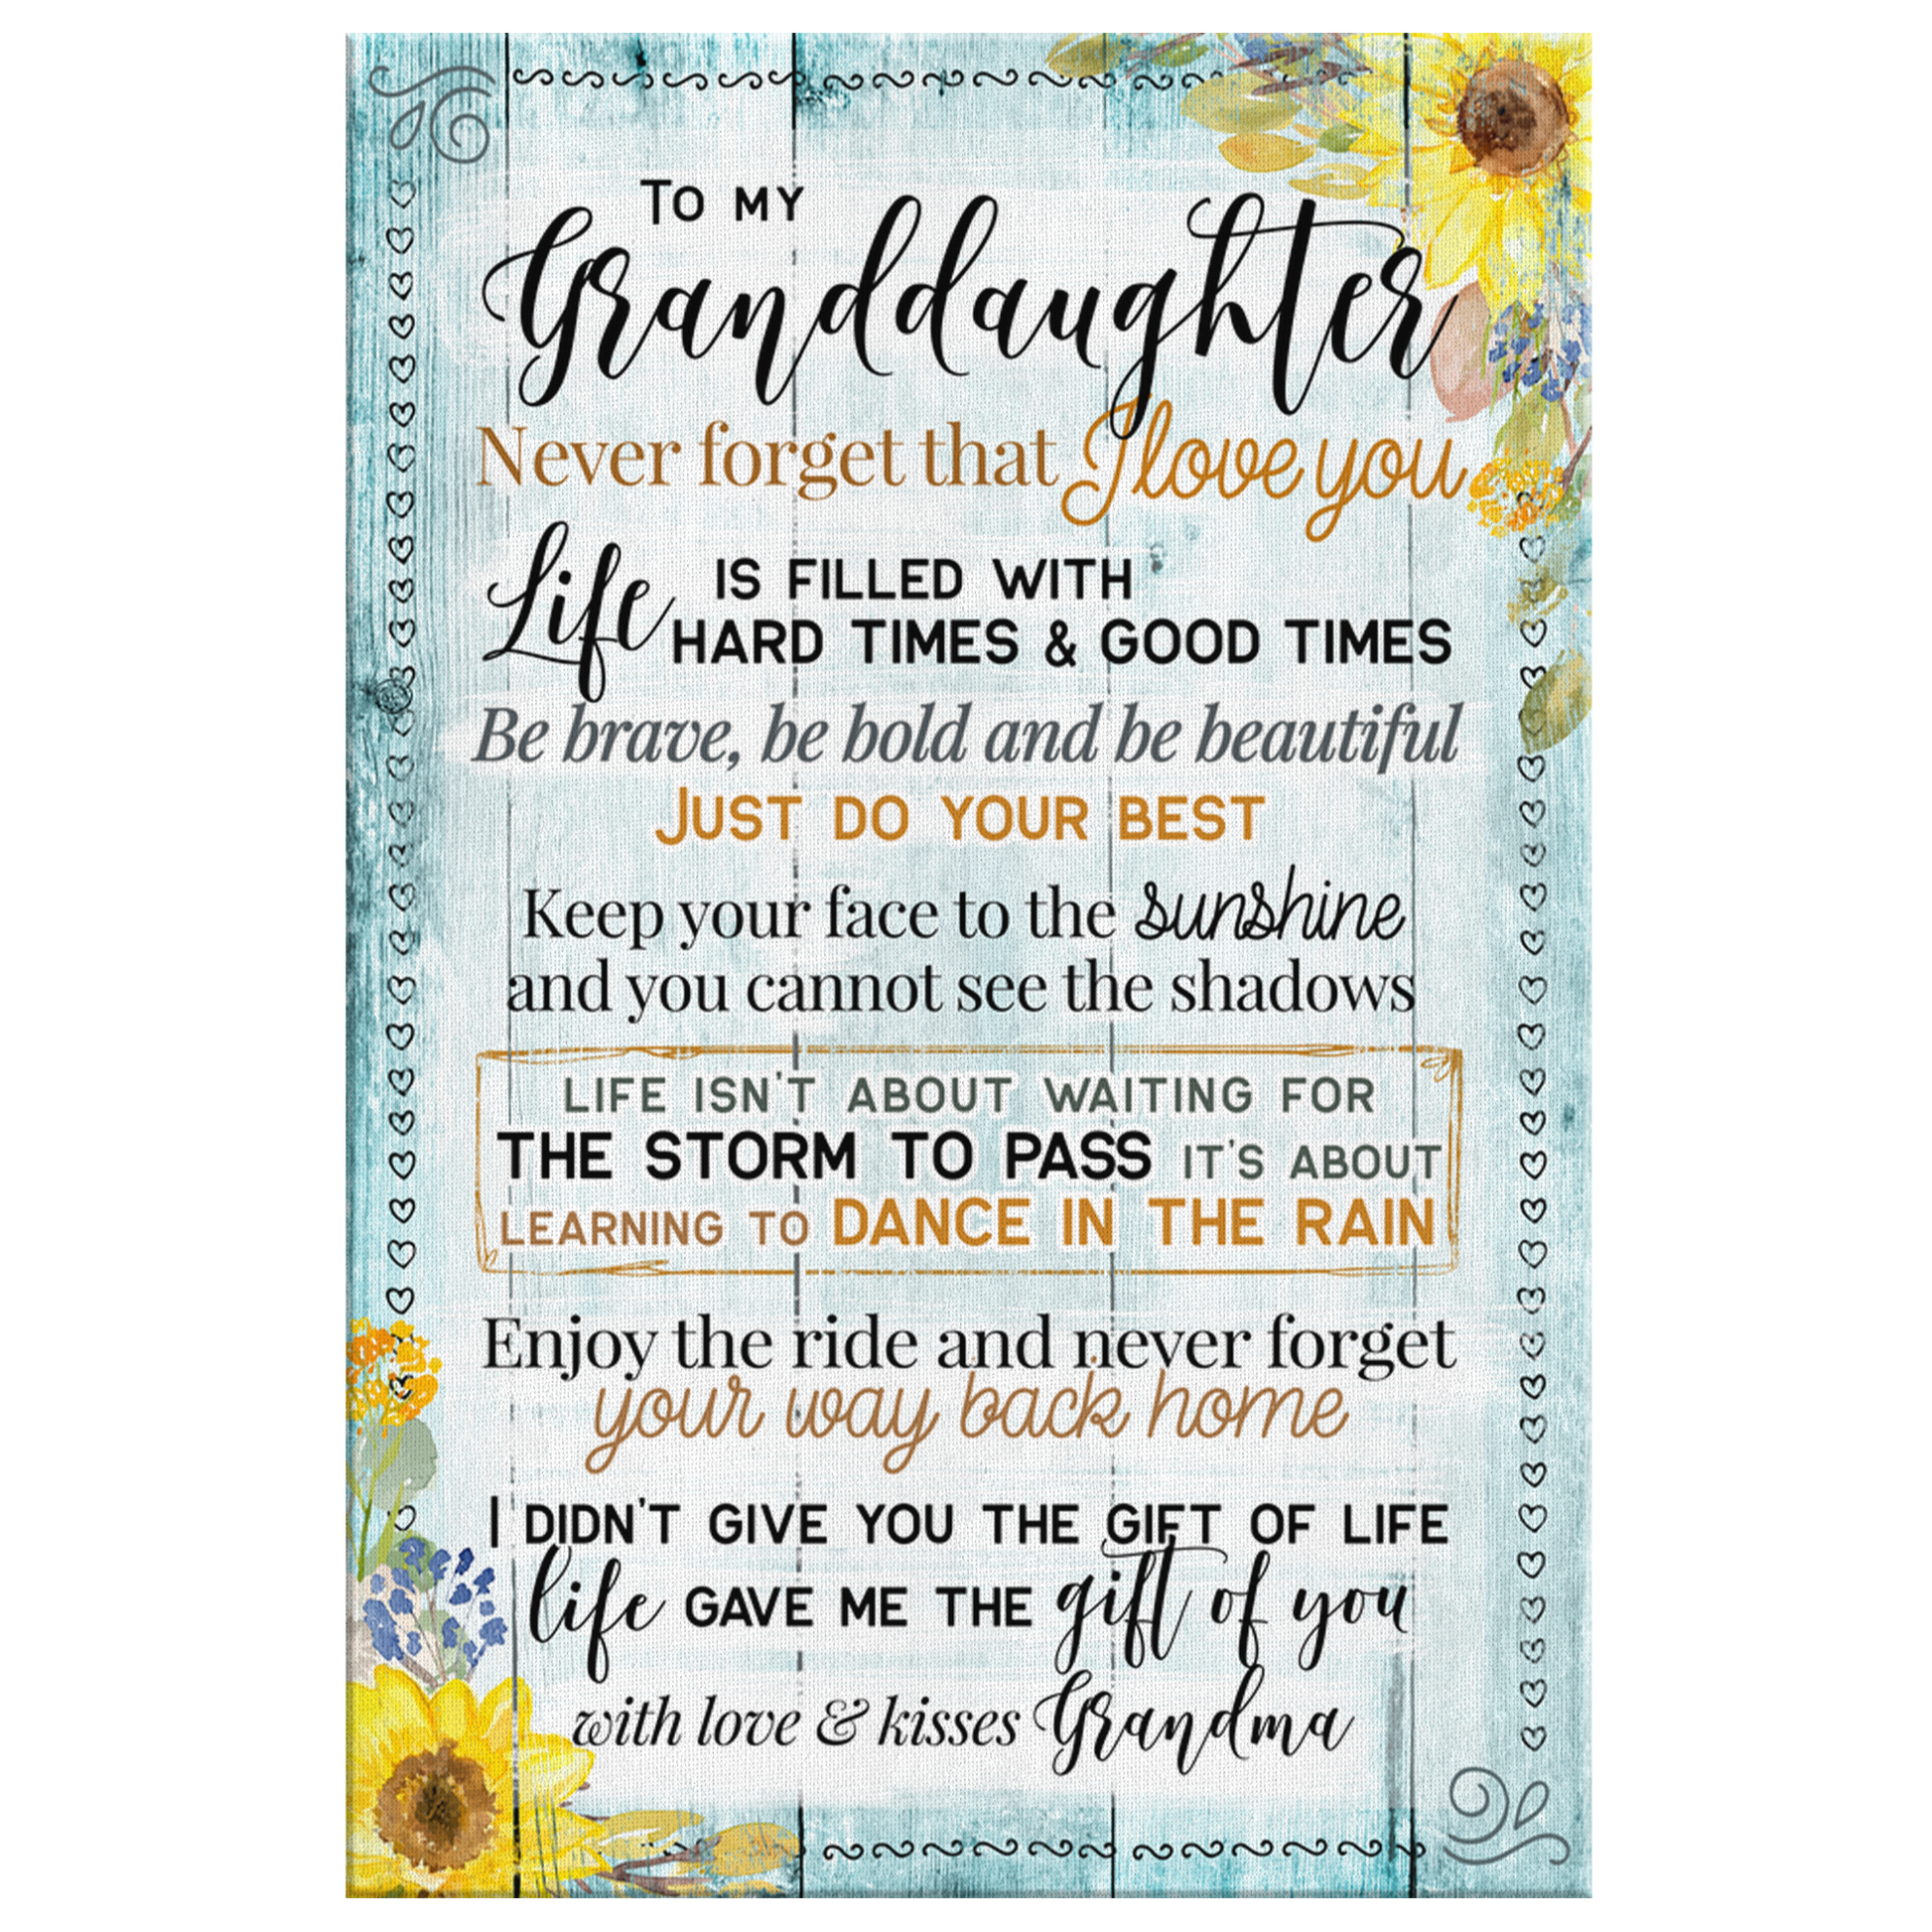 To my
Granddaughter
Never forget that I love you
Life is filled with
hard times & good times
Be brave, be bold and be beautiful
Just do your best
Keep your face to the sunshine
and you cannot see the shadows
LIFE ISN'T ABOUT WAITING FOR
THE STORM TO PASS IT'S ABOUT
LEARNING TO DANCE IN THE RAIN
Enjoy the ride and never forget
your way back home
I DIDN'T GIVE YOU THE GIFT OF LIFE
life GAVE ME THE gift of you
with love & kisses Grandma